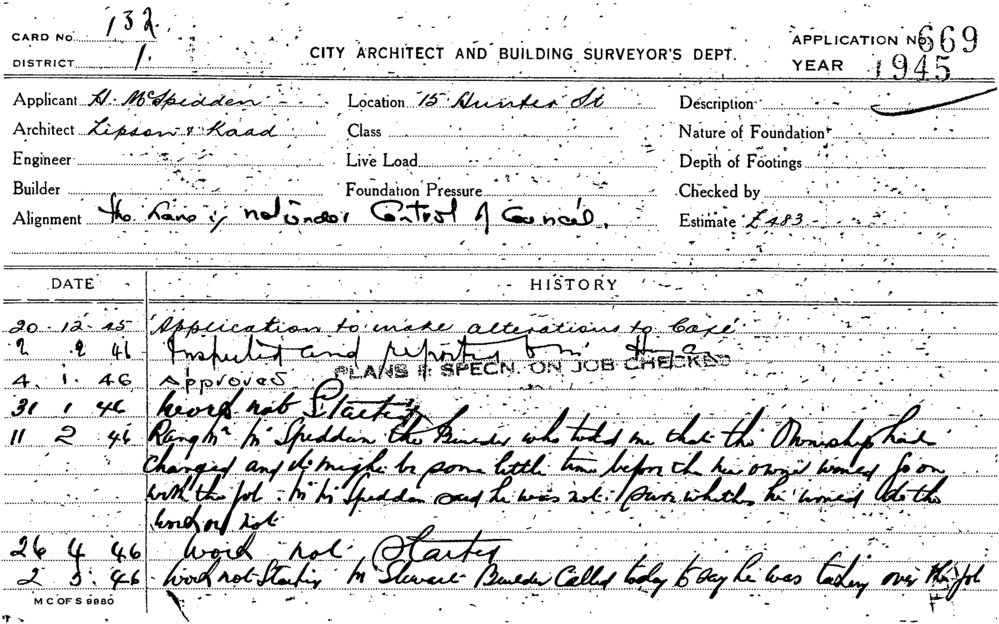 CARD No. 132
DISTRICT 1.
CITY ARCHITECT AND BUILDING SURVEYOR'S DEPT.
APPLICATION No 669
YEAR 1945
Applicant H. McSpedden Location 15 Hunter St Description
Architect Lipson & Kaad Class Nature of Foundation
Engineer Live Load Depth of Footings
Builder Foundation Pressure Checked by
Alignment The Lane is not under Control of Council. Estimate £483
DATE HISTORY
20 12 45 Application to make alterations to Café
2 46 Inspected and reported
PLANS & SPECN. ON JOB CHECKED
4. 1. 46 Approved
31 1 46 Work not Started
11 2 46 Rang Mr McSpedden the Builder who told me that the Ownership had
changed and it might be some little time before the new owner would go on
with the job. Mr McSpedden said he was not sure whether he would do the
work or not
26 4 46 Work not Started
2 5 46 Work not Started Mr Stewart Builder Called today to say he was taking over the job
M C OF S 9980